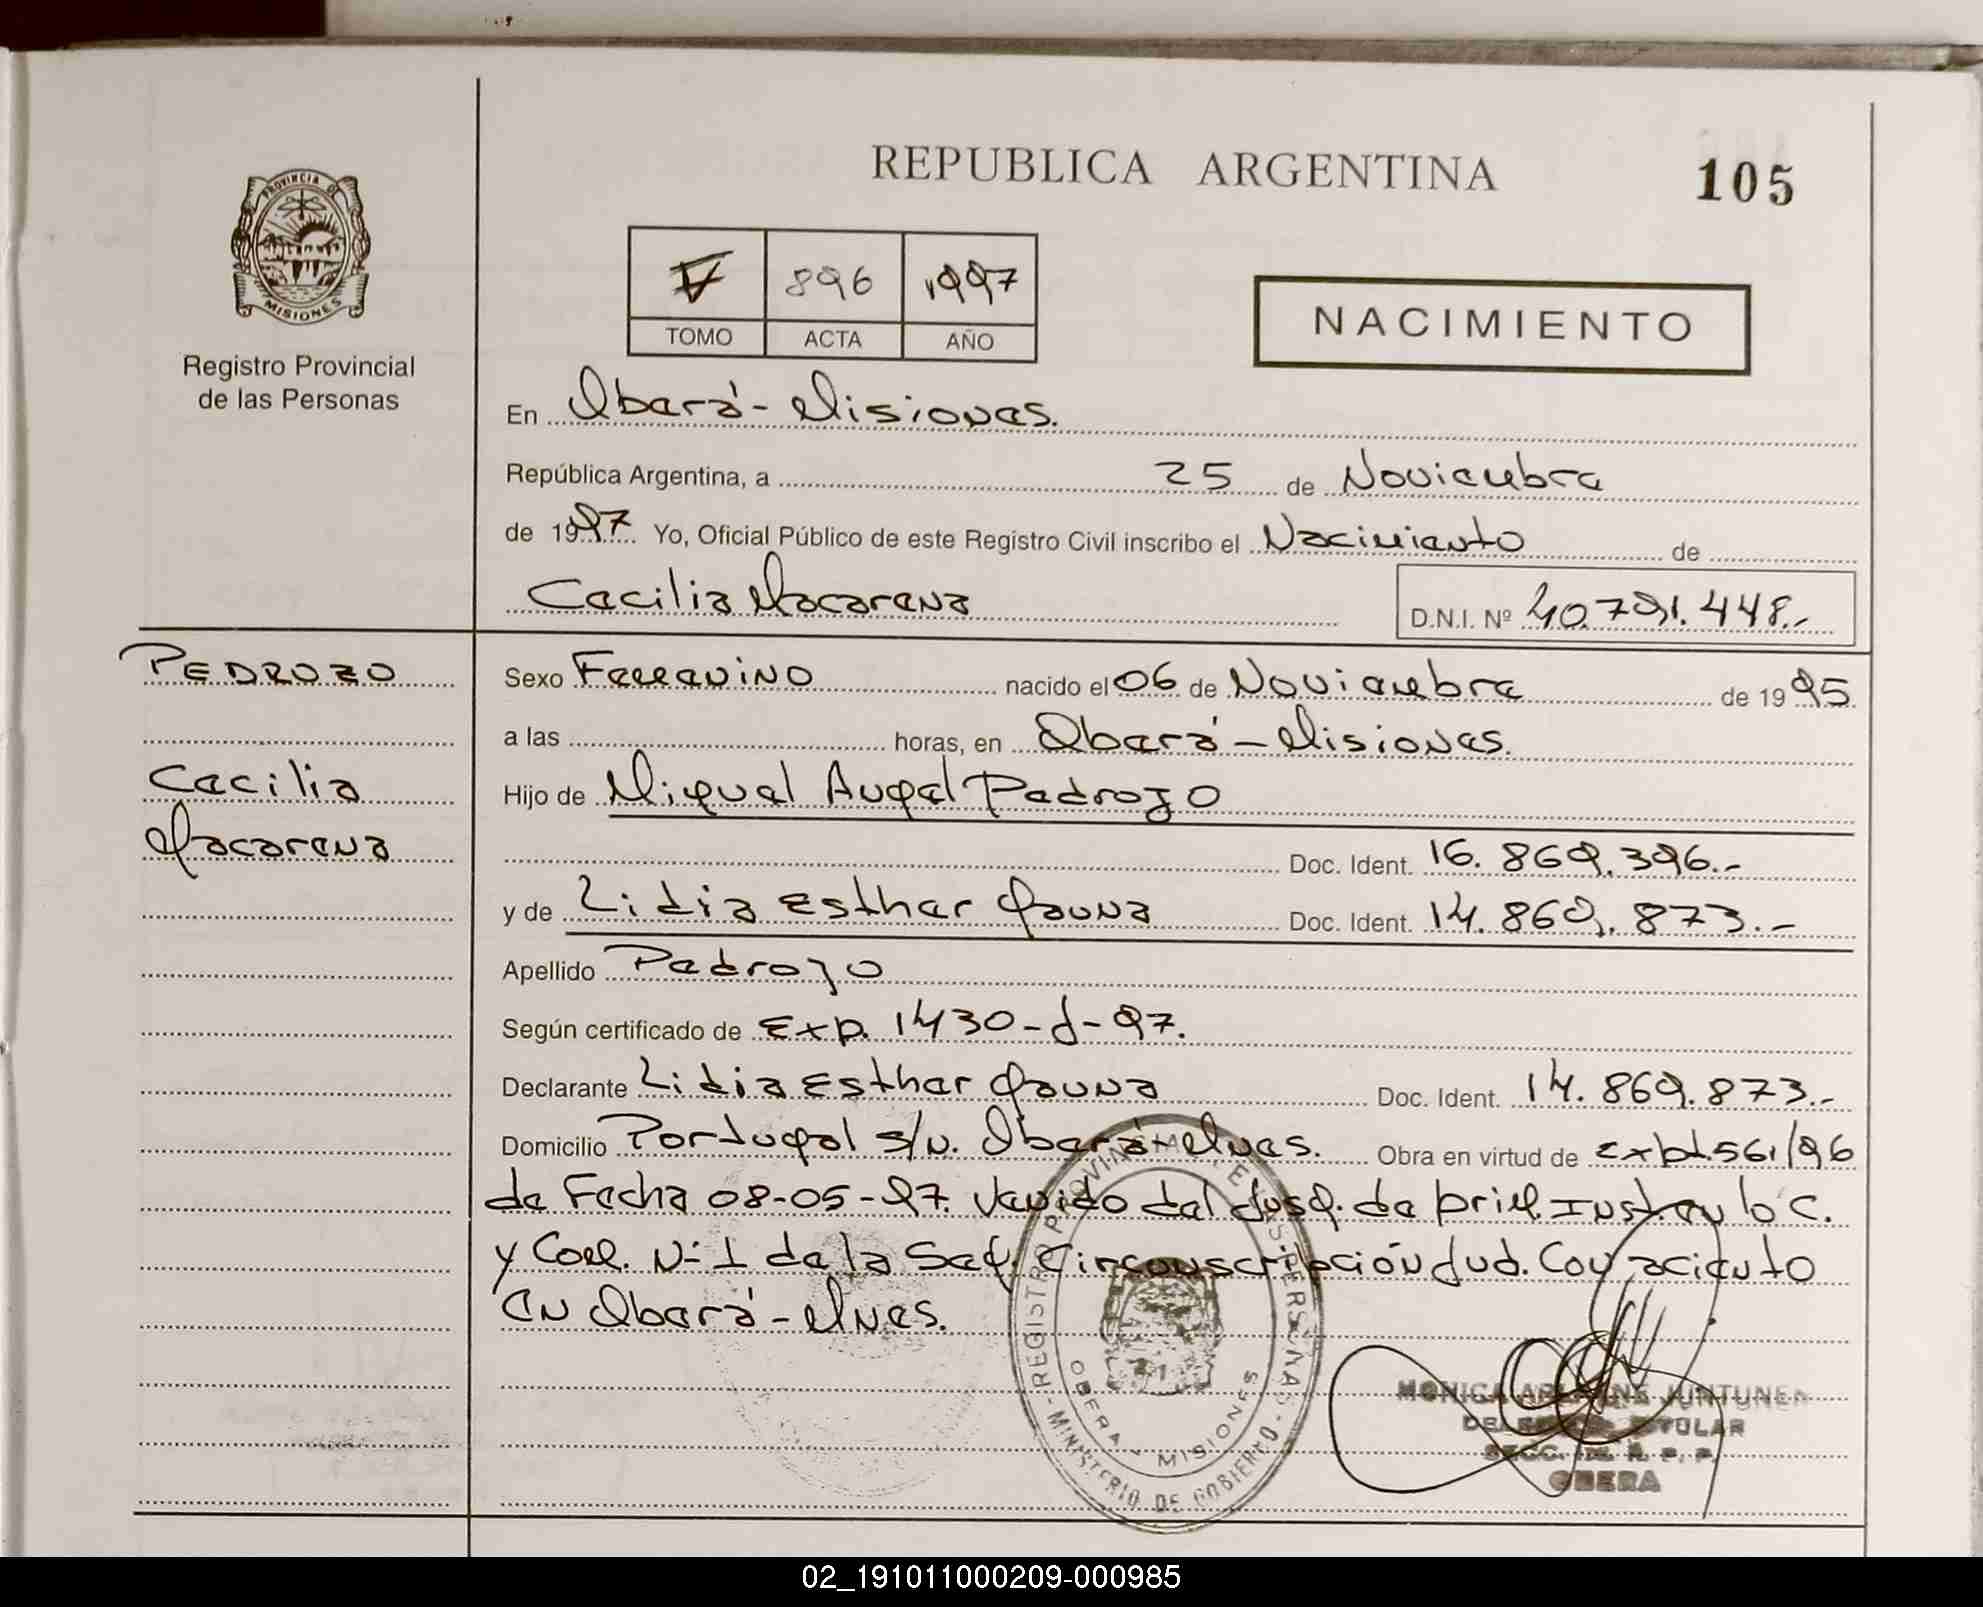 REPUBLICA ARGENTINA
105
PROVINCIA DE
MISIONES
Registro Provincial
de las Personas
V 896 1997
TOMO ACTA AÑO
NACIMIENTO
En Oberá - Misiones.
República Argentina, a 25 de Noviembre
de 1997 Yo, Oficial Público de este Registro Civil inscribo el Nacimiento de
Cecilia Macarena
D.N.I. Nº 40.791.448.-
PEDROZO
Cecilia
Macarena
Sexo Femenino nacido el 06 de Noviembre de 1995
a las horas, en Oberá - Misiones.
Hijo de Miguel Angel Pedrozo
Doc. Ident. 16.869.396.-
y de Lidia Esther Gauna Doc. Ident. 14.869.873.-
Apellido Pedrozo
Según certificado de Exp. 1430-J-97.
Declarante Lidia Esther Gauna Doc. Ident. 14.869.873.-
Domicilio Portugal s/n. Oberá - Mnes. Obra en virtud de Expt.561/96
de Fecha 08-05-97. Venido del Jusg. de prim. Inst. en lo C.
y Com. Nº 1 de la Seg. Circunscripción Jud. Con aciento
en Oberá - Mnes.
REGISTRO PROVINCIAL DE LAS PERSONAS - MINISTERIO DE GOBIERNO -
OBERA - MISIONES
MONICA JUNTUNEN
TITULAR
SECC. R. P. P.
OBERA
02_191011000209-000985